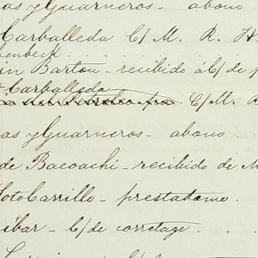 as y Guarneros - abono
Carballeda C/ M. R. H
enbeck
in Barton - recibido á C/ de p
Carballeda
C/ M. R
as y Guarneros - abono
de Bacoachi - recibido de M
Soto Carrillo - prestadome.
ibar - C/ de corretage.